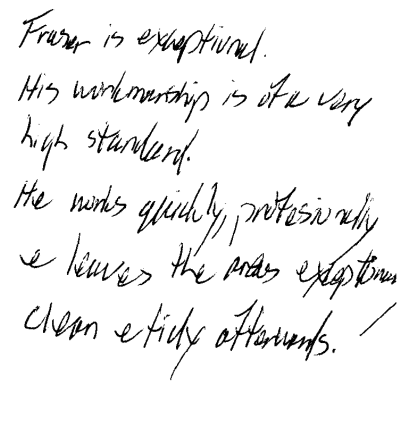 Fraser is exceptional.
His workmanship is of a very
high standard.
He works quickly, profesionally
e leaves the areas exceptional
clean e tidy afterwards.!